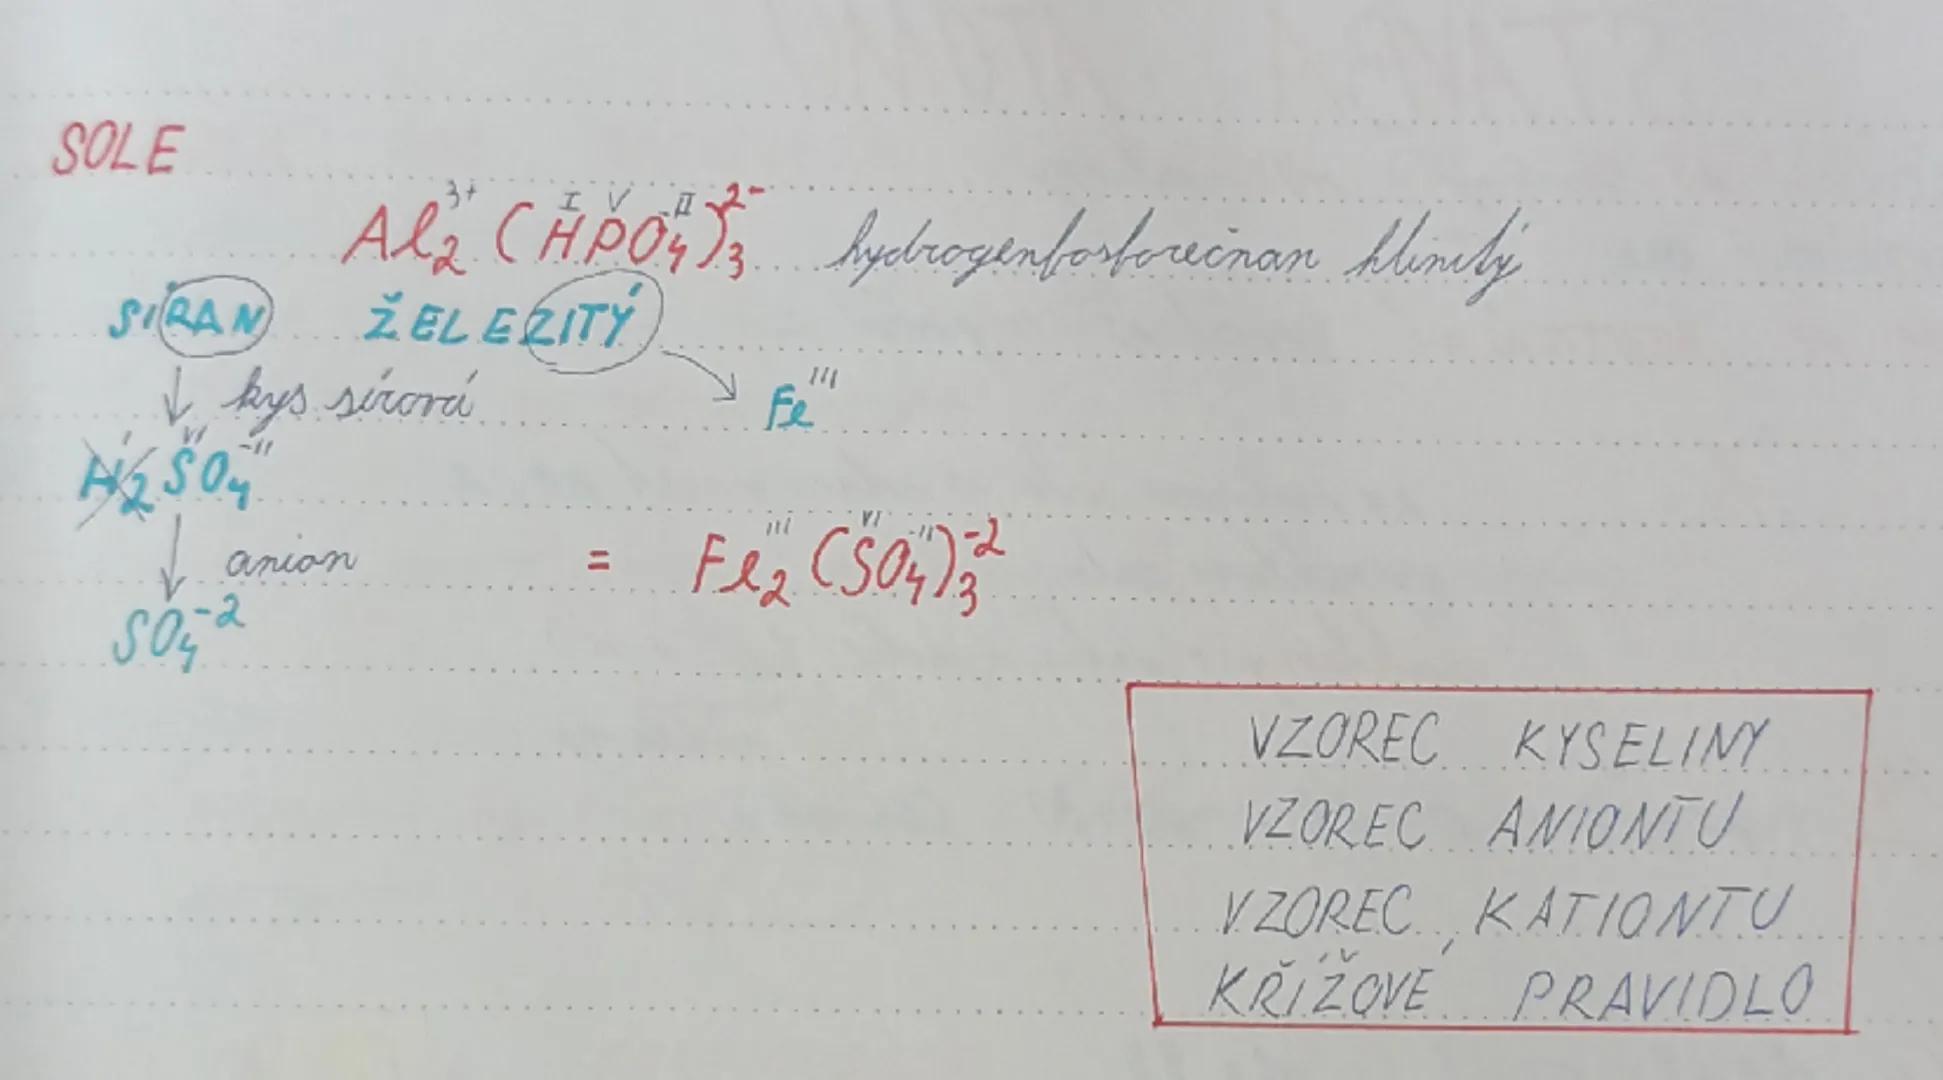 SOLE
Al₂³⁺ (HᴵPⱽO₄⁻ᴵᴵ)₃²⁻ hydrogenfosforečnan hlinitý
SÍRAN ŽELEZITÝ
kys sírová Feᴵᴵᴵ
H₂ᴵSⱽᴵO₄⁻ᴵᴵ
anion = Fe₂ᴵᴵᴵ (SⱽᴵO₄⁻ᴵᴵ)₃⁻²
SO₄⁻²
VZOREC KYSELINY
VZOREC ANIONTU
VZOREC KATIONTU
KŘÍŽOVÉ PRAVIDLO